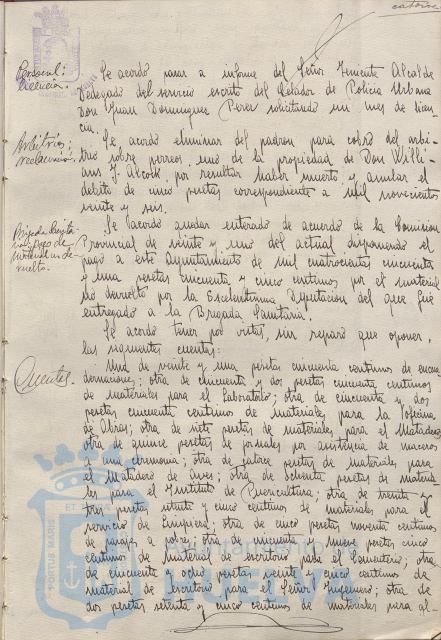 catorce
Personal:
Licencia.
Se acordó pasar a informe del Señor Teniente Alcalde
Delegado del servicio escrito del Celador de Policía Urbana
Don Juan Dominguez Perez solicitando un mes de licen-
cia.
Arbitrios;
reclamación.
Se acordó eliminar del padron para cobro del arbi-
trio sobre perros, uno de la propiedad de Don Willi-
ams J. Alcock por resultar haber muerto, y anular el
debito de cinco pesetas correspondiente a mil novecientos
veinte y seis.
Brigada Sanita-
ria; pago de
material no de-
vuelto.
Se acordó quedar enterado de acuerdo de la Comision
Provincial de veinte y uno del actual disponiendo el
pago a este Ayuntamiento de mil cuatrocientas cincuenta
y una pesetas cincuenta y cinco centimos por el material
no devuelto por la Excelentísima Diputacion del que fué
entregado a la Brigada Sanitaria.
Se acordó tener por vistas, sin reparo que oponer,
las siguientes cuentas:
Cuentas.
Una de veinte y una pesetas cincuenta centimos de encua-
dernaciones; otra de cincuenta y dos pesetas cincuenta centimos
de materiales para el Laboratorio; otra de cincuenta y dos
pesetas cincuenta centimos de materiales para la Oficina
de Obras; otra de siete pesetas de materiales para el Matadero;
otra de quince pesetas de jornales por asistencia de maceros
a una ceremonia; otra de catorce pesetas de materiales para
el Matadero de aves; otra de setenta pesetas de materia-
les para el Instituto de Puericultura; otra de treinta y
tres pesetas setenta y cinco centimos de materiales para el
servicio de limpieza; otra de cinco pesetas noventa centimos
de; otra de cincuenta y nueve pesetas cinco
centimos de material de escritorio para el Cementerio; otra
de cincuenta y ocho pesetas veinte y cinco centimos de
material de escritorio para el Señor Ingeniero; otra de
dos pesetas setenta y cinco centimos de materiales para al-